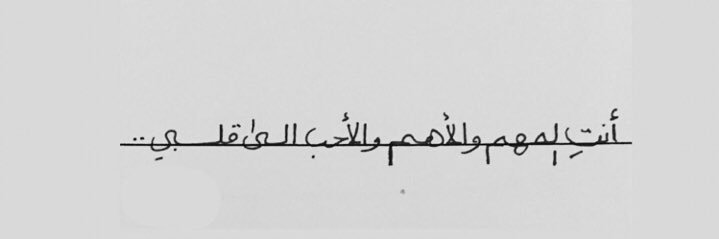 أنتِ المهم والأهم والأحب الىٰ قلبي..